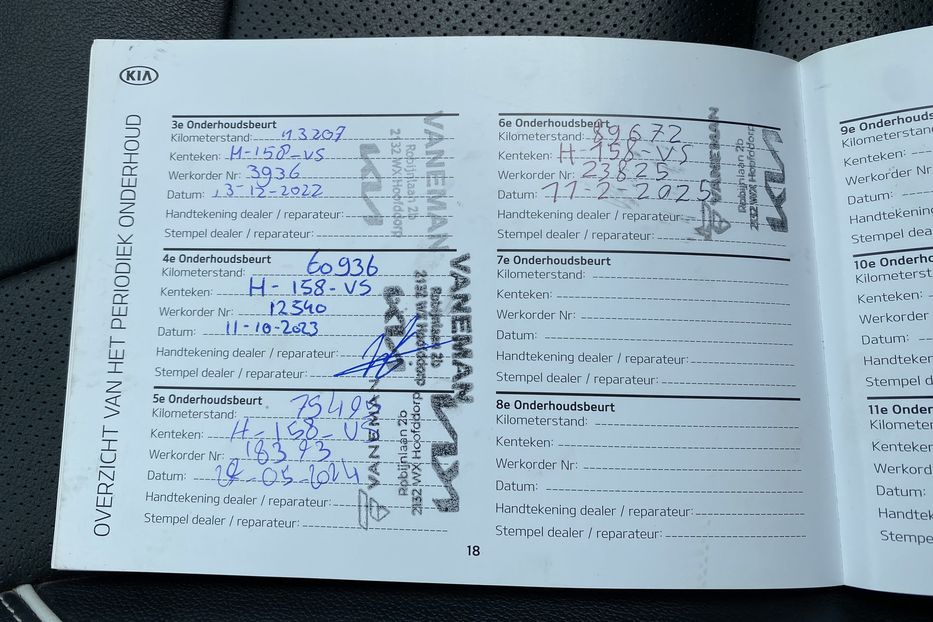 KIA
OVERZICHT VAN HET PERIODIEK ONDERHOUD
3e Onderhoudsbeurt
Kilometerstand: 43207
Kenteken: H-158-VS
Werkorder Nr: 3936
Datum: 13-12-2022
Handtekening dealer / reparateur:
Stempel dealer / reparateur:
VANEMAN
Robijnlaan 2b
2132 WX Hoofddorp
KIA
4e Onderhoudsbeurt
Kilometerstand: 60936
Kenteken: H-158-VS
Werkorder Nr: 12540
Datum: 11-10-2023
Handtekening dealer / reparateur:
Stempel dealer / reparateur:
VANEMAN
Robijnlaan 2b
2132 WX Hoofddorp
KIA
5e Onderhoudsbeurt
Kilometerstand: 75495
Kenteken: H-158-VS
Werkorder Nr: 18393
Datum: -05-2024
Handtekening dealer / reparateur:
Stempel dealer / reparateur:
VANEMAN
Robijnlaan 2b
2132 WX Hoofddorp
KIA
6e Onderhoudsbeurt
Kilometerstand: 89672
Kenteken: H-158-VS
Werkorder Nr: 23825
Datum: 11-2-2025
Handtekening dealer / reparateur:
Stempel dealer / reparateur:
VANEMAN
Robijnlaan 2b
2132 WX Hoofddorp
KIA
7e Onderhoudsbeurt
Kilometerstand:
Kenteken:
Werkorder Nr:
Datum:
Handtekening dealer / reparateur:
Stempel dealer / reparateur:
8e Onderhoudsbeurt
Kilometerstand:
Kenteken:
Werkorder Nr:
Datum:
Handtekening dealer / reparateur:
Stempel dealer / reparateur:
18
9e Onderhouds
Kilometerstan
Kenteken:
Werkorder Nr
Datum:
Handtekening
Stempel deale
10e Onderho
Kilometerst
Kenteken:
Werkorder
Datum:
Handteken
Stempel d
11e Onder
Kilometer
Kenteken
Werkord
Datum:
Handtek
Stempe